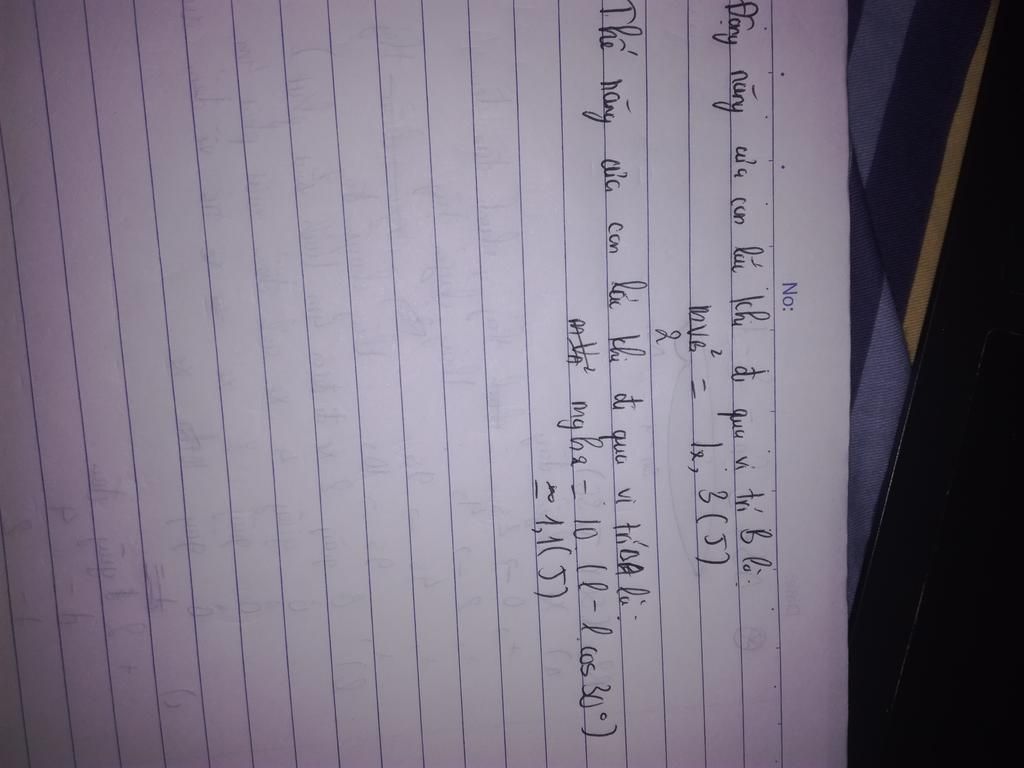 No:
Động năng của con lắc khi đi qua vị trí B là:
mv_b²/2 = 12,3 (J)
Thế năng của con lắ khi đi qua vị trí A là:
mgh_a = 10 (l - l cos 30°)
= 1,1 (J)